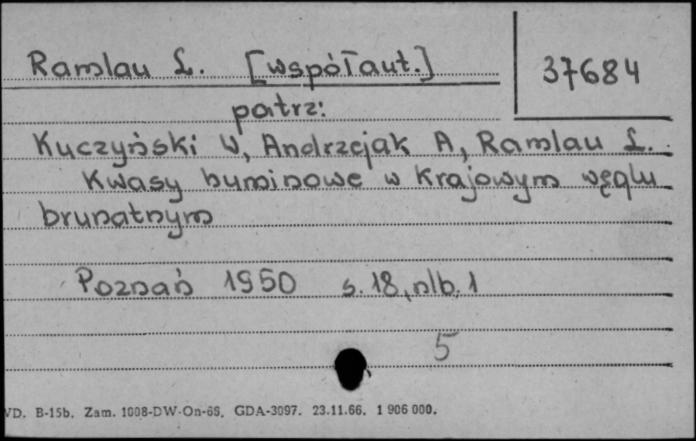 Ramlau L. [współaut.]
37684
patrz:
Kuczyński W, Andrzejak A, Ramlau L.
Kwasy huminowe w krajowym węglu
brunatnym
Poznań 1950 s. 18, nlb. 1
5
VD. B-15b. Zam. 1008-DW-On-65. GDA-3097. 23.11.66. 1 906 000.